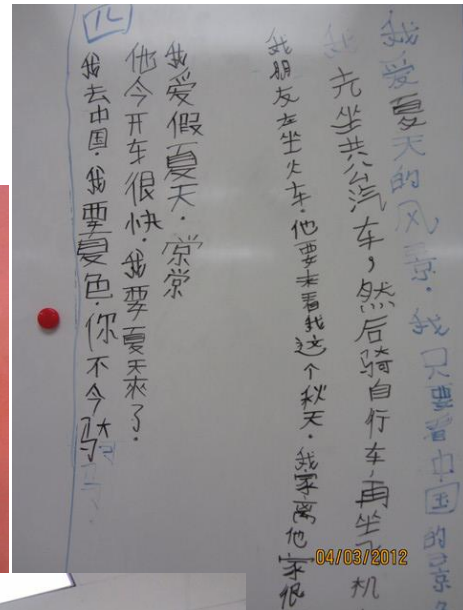 我爱夏天的风景.我只要看中国的景
先坐共公汽车,然后骑自行车,再坐飞机
我朋友坐火车.他要来看我这个秋天.我家离他家很
我爱假夏天.常常
他今开车很快.我要夏天来了.
我去中国.我要夏色.你不今骑
四
04/03/2012